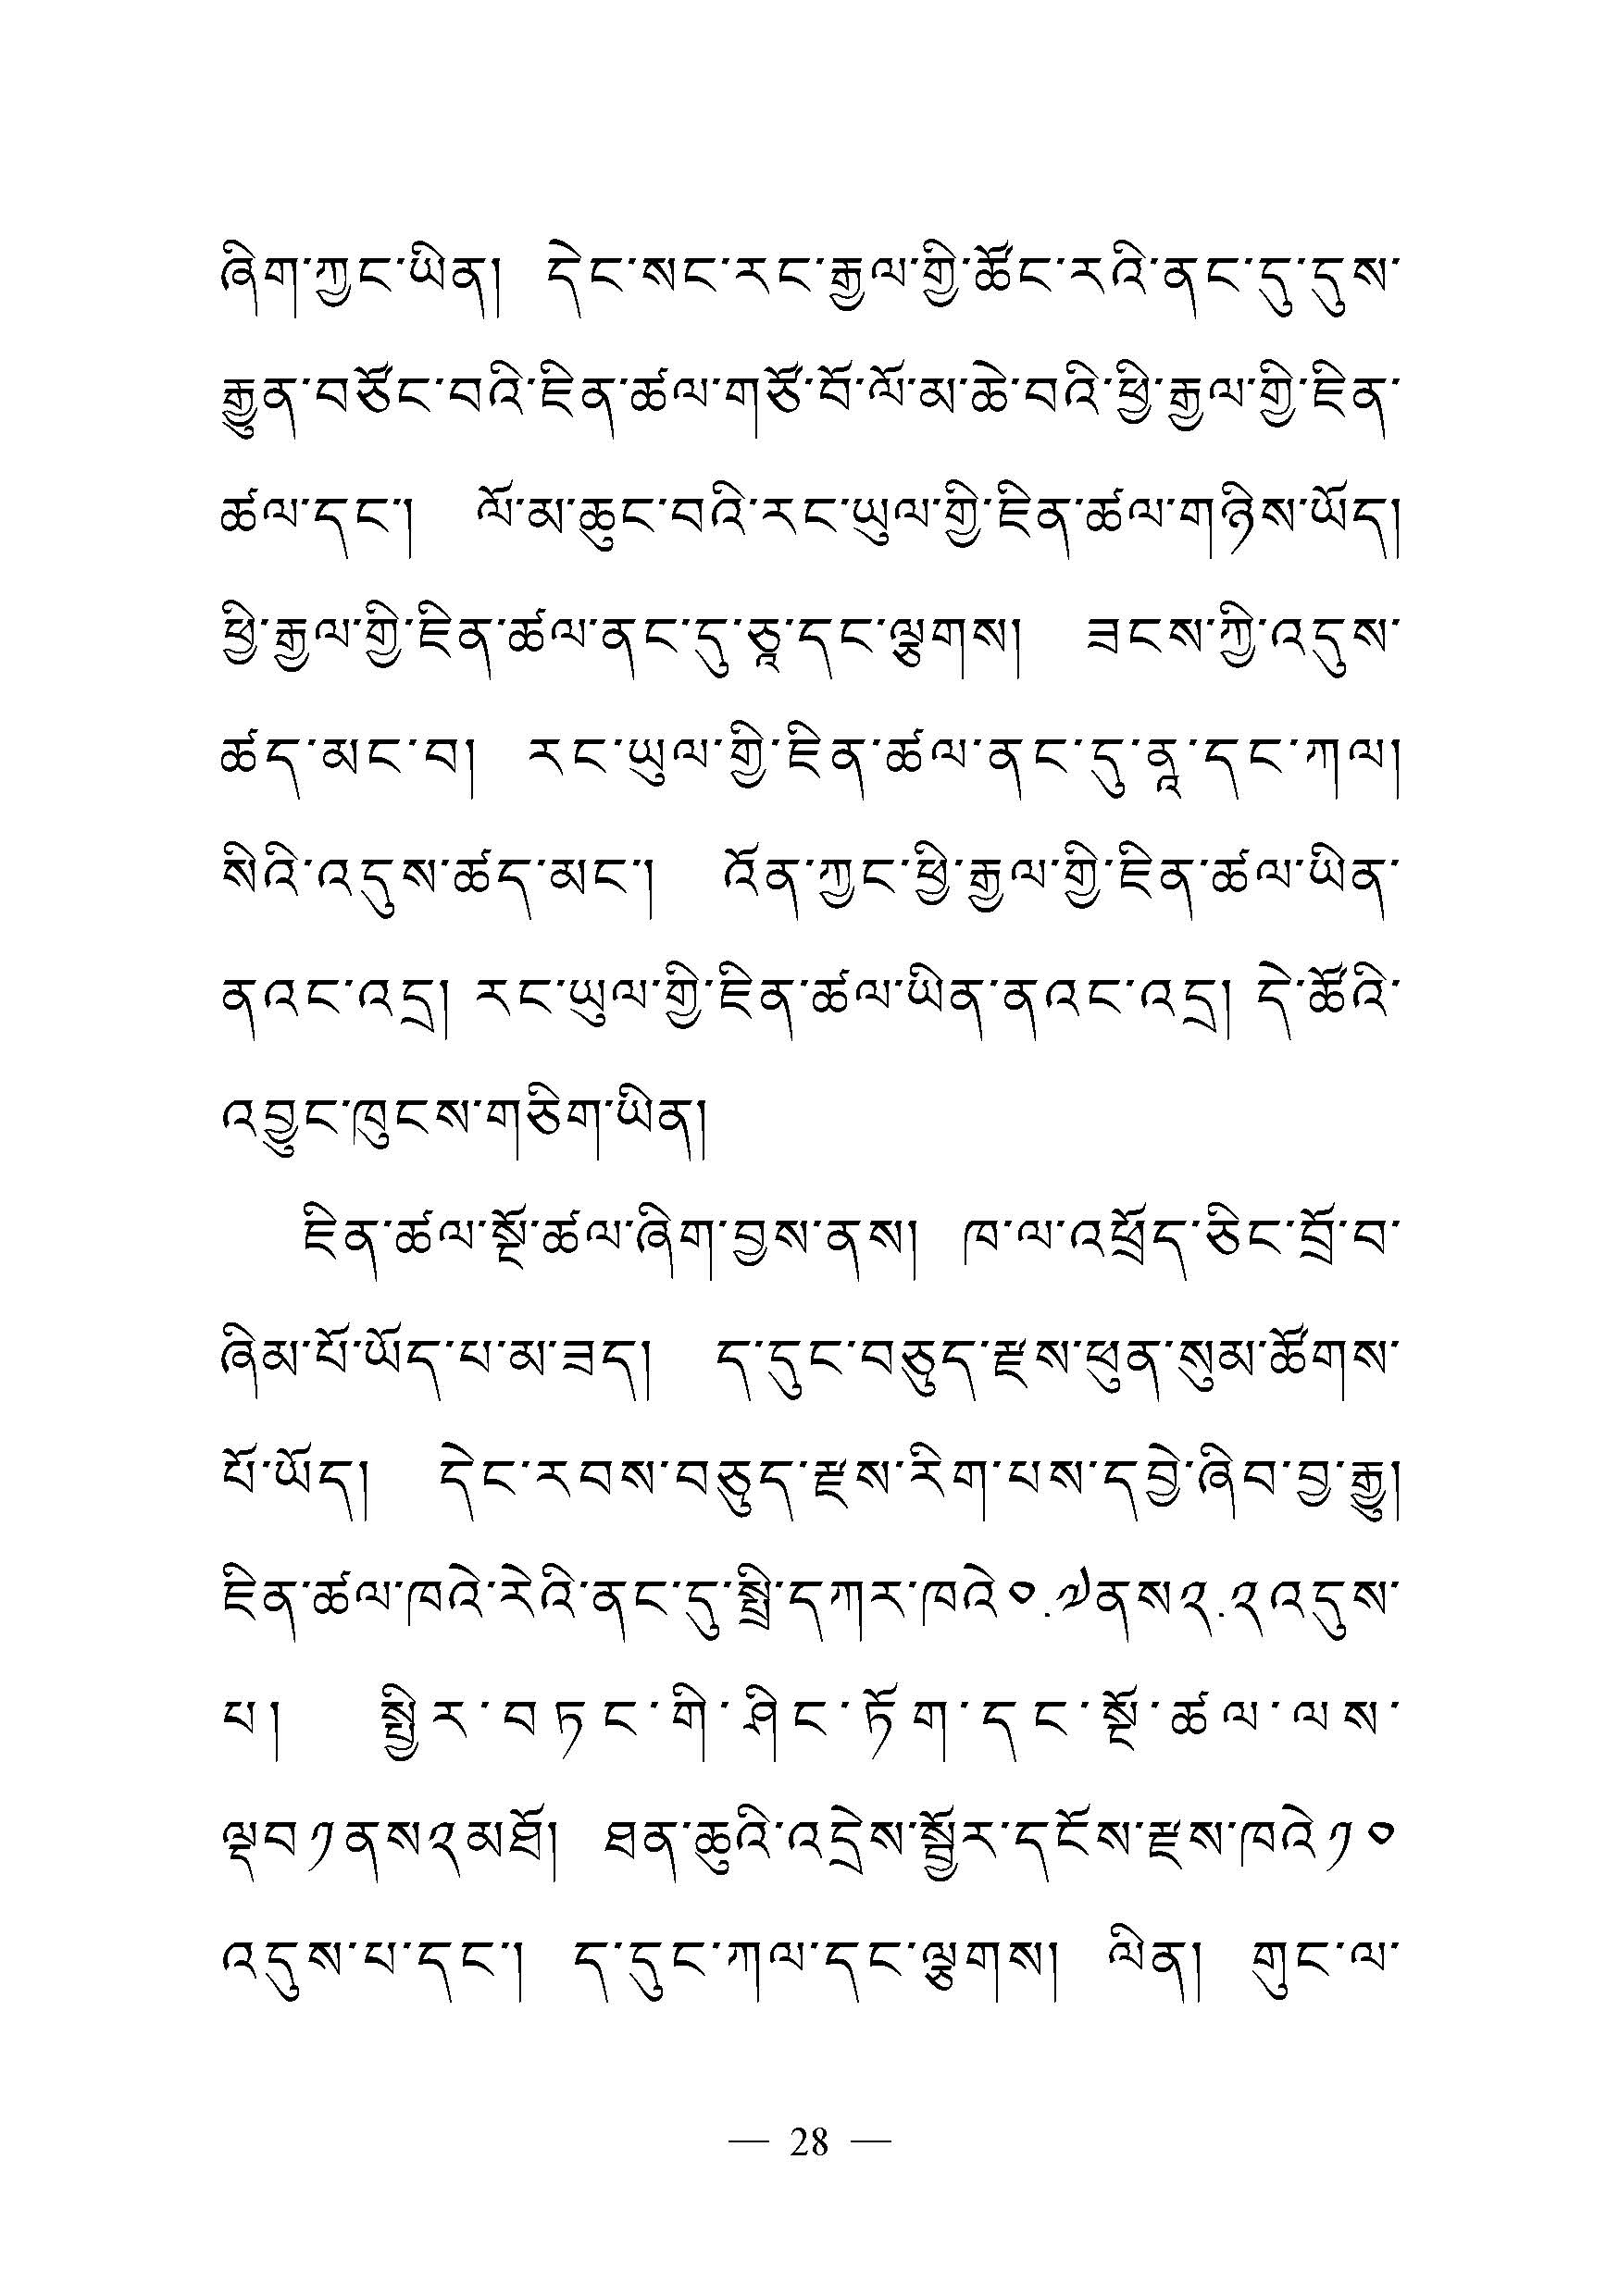 ཞིག་ཀྱང་ཡིན། དེང་སང་རང་རྒྱལ་གྱི་ཚོང་རའི་ནང་དུ་དུས་
རྒྱུན་བཙོང་བའི་ཇིན་ཚལ་གཙོ་བོ་ལོ་མ་ཆེ་བའི་ཕྱི་རྒྱལ་གྱི་ཇིན་
ཚལ་དང་། ལོ་མ་ཆུང་བའི་རང་ཡུལ་གྱི་ཇིན་ཚལ་གཉིས་ཡོད།
ཕྱི་རྒྱལ་གྱི་ཇིན་ཚལ་ནང་དུ་ཅཱ་དང་ལྕགས། ཟངས་ཀྱི་འདུས་
ཚད་མང་བ། རང་ཡུལ་གྱི་ཇིན་ཚལ་ནང་དུ་ནཱ་དང་ཀལ།
སིའི་འདུས་ཚད་མང་། འོན་ཀྱང་ཕྱི་རྒྱལ་གྱི་ཇིན་ཚལ་ཡིན་
ནའང་འདྲ། རང་ཡུལ་གྱི་ཇིན་ཚལ་ཡིན་ནའང་འདྲ། དེ་ཚོའི་
འབྱུང་ཁུངས་གཅིག་ཡིན།
ཇིན་ཚལ་སྔོ་ཚལ་ཞིག་བྱས་ནས། ཁ་ལ་འཕྲོད་ཅིང་བྲོ་བ་
ཞིམ་པོ་ཡོད་པ་མ་ཟད། ད་དུང་བཅུད་རྫས་ཕུན་སུམ་ཚོགས་
པོ་ཡོད། དེང་རབས་བཅུད་རྫས་རིག་པས་དབྱེ་ཞིབ་བྱ་རྒྱུ།
ཇིན་ཚལ་ཁའེ་རེའི་ནང་དུ་སྤྲི་དཀར་ཁའེ༠.༧ནས༢.༢འདུས་
པ། སྤྱིར་བཏང་གི་ཤིང་ཏོག་དང་སྔོ་ཚལ་ལས་
ལྡབ༡ནས༢མཐོ། ཐན་ཆུའི་འདྲེས་སྦྱོར་དངོས་རྫས་ཁའེ༡༠
འདུས་པ་དང་། ད་དུང་ཀལ་དང་ལྕགས། ལིན། གུང་ལ་
— 28 —